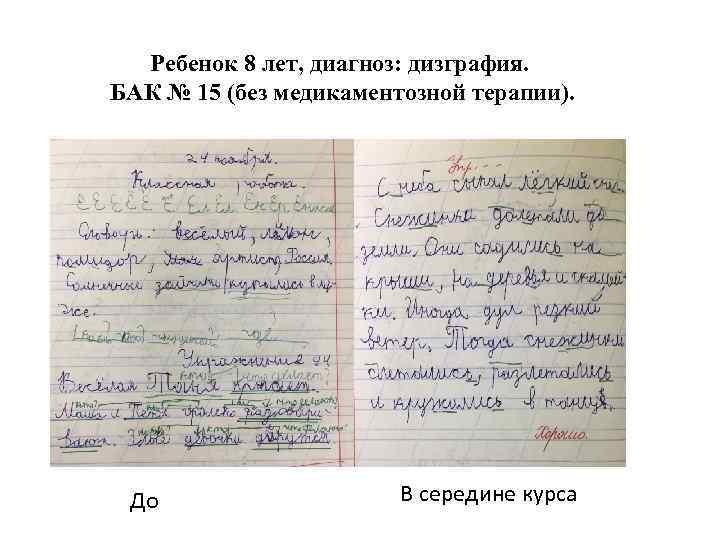 Ребенок 8 лет, диагноз: дизграфия.
БАК № 15 (без медикаментозной терапии).
24 ноября.
Классная работа.
Словарь: весёлый,
помидор, артист, Россия
Солнечные зайчики купались в лу
же.
где
Упражнение
Весёлая Таня
Маша и Петя громко разговари
вают. Злые девочки дерутся
Упр...
С неба сыпал лёгкий снег.
Снежинки долетали до
земли. Они садились на
крыши, на деревья и скамей
ки. Иногда дул резкий
ветер. Тогда снежинки
слетались, разлетались
и кружились в танце.
Хорошо.
До
В середине курса